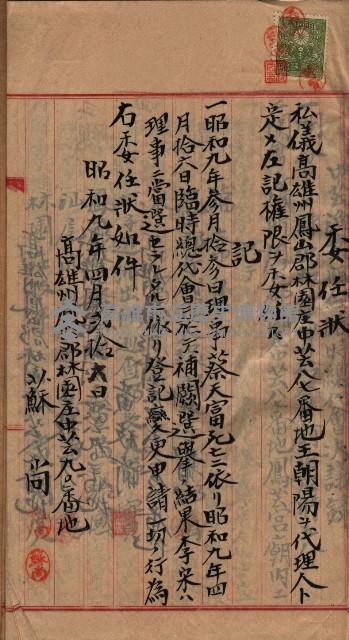 委任狀
私儀高雄州鳳山郡林園庄中芸八七番地王朝陽ヲ代理人ト
定メ左記權限ヲ委任ス
記
一昭和九年參月拾參日理事蔡天富死亡ニ依リ昭和九年四
月拾六日臨時總代會ニ於テ補闕選舉ノ結果李宋ハ
理事ニ當選セラレタルニ依リ登記變更申請一切ノ行為
右委任狀如件
昭和九年四月貳拾六日
高雄州鳳山郡林園庄中芸九〇番地
蘇尚